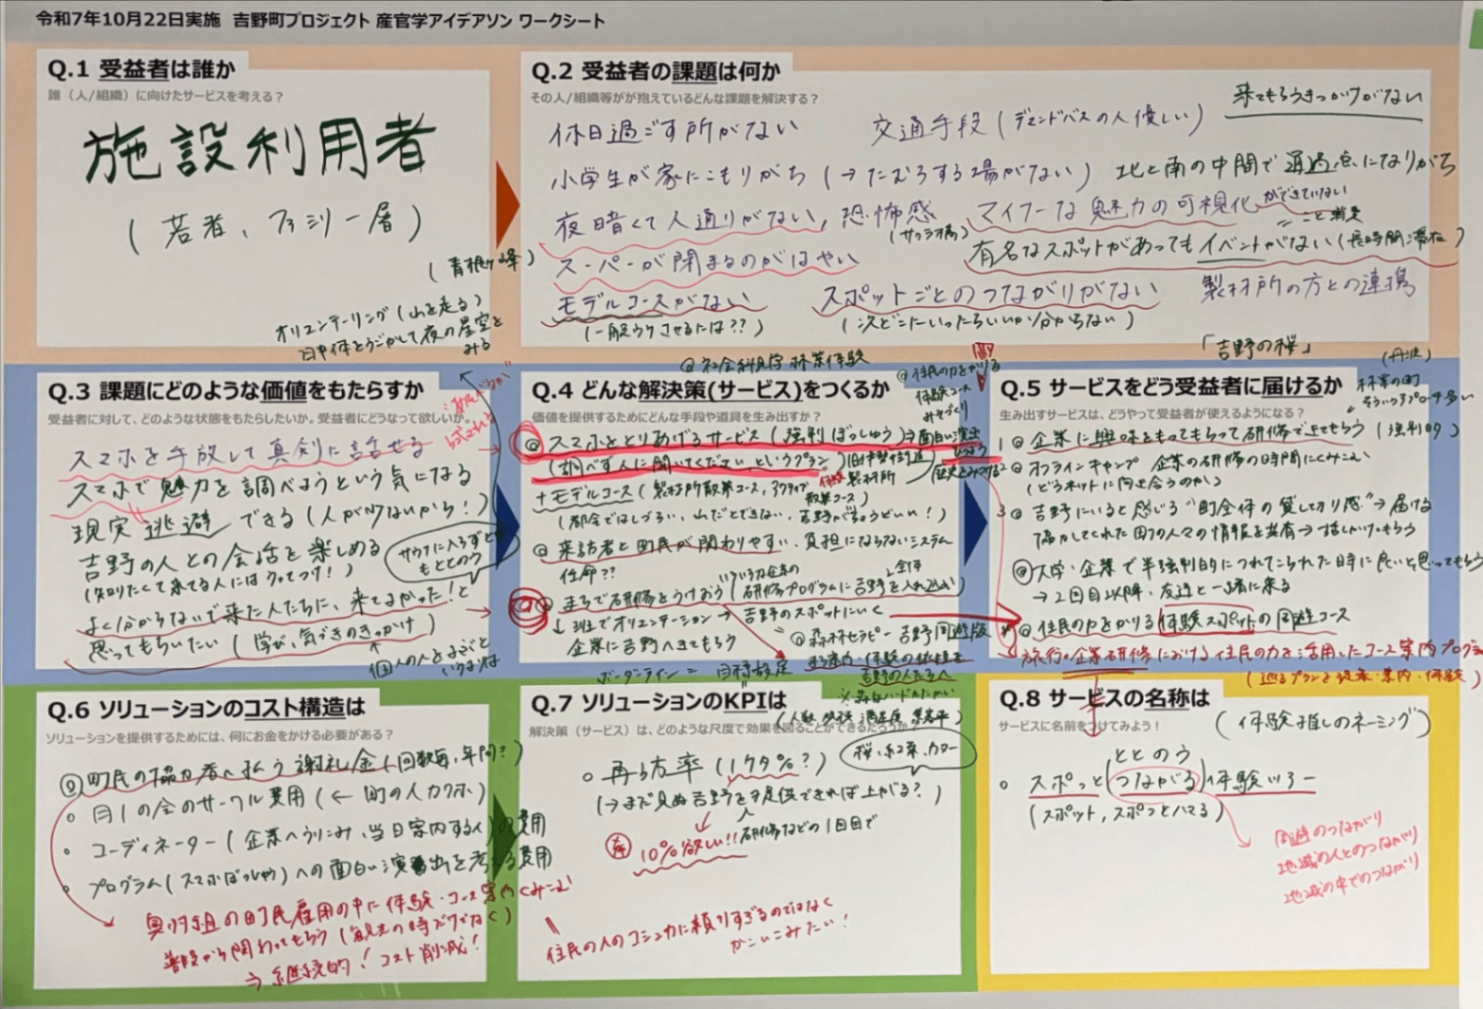 令和7年10月22日実施 吉野町プロジェクト 産官学アイデアソン ワークシート
Q.1 受益者は誰か
誰（人/組織）に向けたサービスを考える？
施設利用者
（若者、ファミリー層）
（青根ヶ峰）
オリエンテーリング（山を走る）
日中体をうごかして夜の星空を
みる
Q.2 受益者の課題は何か
その人/組織等がが抱えているどんな課題を解決する？
来てもらうきっかけがない
休日過ごす所がない
交通手段（デマンドバスの人優しい）
小学生が家にこもりがち（→たむろする場がない）
北と南の中間で通過点になりがち
夜暗くて人通りがない，恐怖感
マイナーな魅力の可視化ができていない
有名なスポットがあってもイベントがない（長時間滞在）
スーパーが閉まるのがはやい
モデルコースがない
スポットごとのつながりがない
製材所の方との連携
（一般ウケさせるには??）
（次どこにいったらいいか分からない）
「吉野の桜」
Q.3 課題にどのような価値をもたらすか
受益者に対して、どのような状態をもたらしたいか。受益者にどうなって欲しいか。
スマホを手放して真剣に会話せる
スマホで魅力を調べようという気になる
現実逃避できる（人が少ないから！）
吉野の人との会話を楽しめる
（知りたくて来てる人にはうってつけ！）
サウナに入らずと
もととのう
よく分からないで来た人たちに、来てよかった！と
思ってもらいたい（学び、気づきのきっかけ）
Q.4 どんな解決策(サービス)をつくるか
価値を提供するためにどんな手段や道具を生み出すか？
@ 社会科見学 林業体験
@ 住民の力をかりる
体験コース
@ スマホをとりあげるサービス（強制ぼっしゅう）⇒面白い演出
（調べず人に聞いてください、というプラン）
+モデルコース（製材所散策コース，アクティブ
散策コース）
（都会ではしづらい、山だとできない、吉野がちょうどいい！）
@ 来訪者と町民が関わりやすい、負担にならないシステム
任命??
@ まちで研修をうけよう
（研修プログラムに吉野を入れ込む）
↳ 班でオリエンテーション → 吉野のスポットにいく
企業に吉野へきてもらう
@ 森林セラピー 吉野周遊版
Q.5 サービスをどう受益者に届けるか
生み出すサービスは、どうやって受益者が使えるようになる？
（丹波）
林業の町
1 @ 企業に興味をもってもらって研修で来てもらう（強制的）
2 @ オフラインキャンプ 企業の研修の時間にくみこむ
（どうネットに向き合うのか）
3 @ 吉野にいると感じる"町全体の貸し切り感"→届ける
協力してくれた町の人々の情報を共有→話しかけてもらう
@ 大学・企業で半強制的につれてこられた時に良いと思ってもらう
→2回目以降、友達と一緒に来る
@ 住民の力をかりる体験スポットの周遊コース
旅行・企業研修における住民の力を活用したコース案内プログラム
（巡るプランを提案・案内・体験）
Q.6 ソリューションのコスト構造は
ソリューションを提供するためには、何にお金をかける必要がある？
@ 町民の協力者へ払う謝礼金（回数毎、年間？）
コーディネーター（企業へうりこみ，当日案内する人）の費用
プログラム（スマホぼっしゅう）への面白い演出を考える費用
の町民雇用の中に体験・コース案内くみこむ
普段から関わってもらう（観光の時だけでなく）
⇒継続的！コスト削減！
Q.7 ソリューションのKPIは
解決策（サービス）は、どのような尺度で効果を図ることができるだろうか？
桜，紅葉，カヌー
再訪率（179%？）
（→まだ見ぬ吉野を提供できれば上がる？）
10%欲しい!! 研修などの1回目で
住民の人のコジン力に頼りすぎるのではなく
かこいこみたい！
Q.8 サービスの名称は
サービスに名前をつけてみよう！
（体験推しのネーミング）
ととのう
スポっと（つながる）体験ツアー
（スポット，スポっとハマる）
周遊のつながり
地域の人とのつながり
地域の中でのつながり